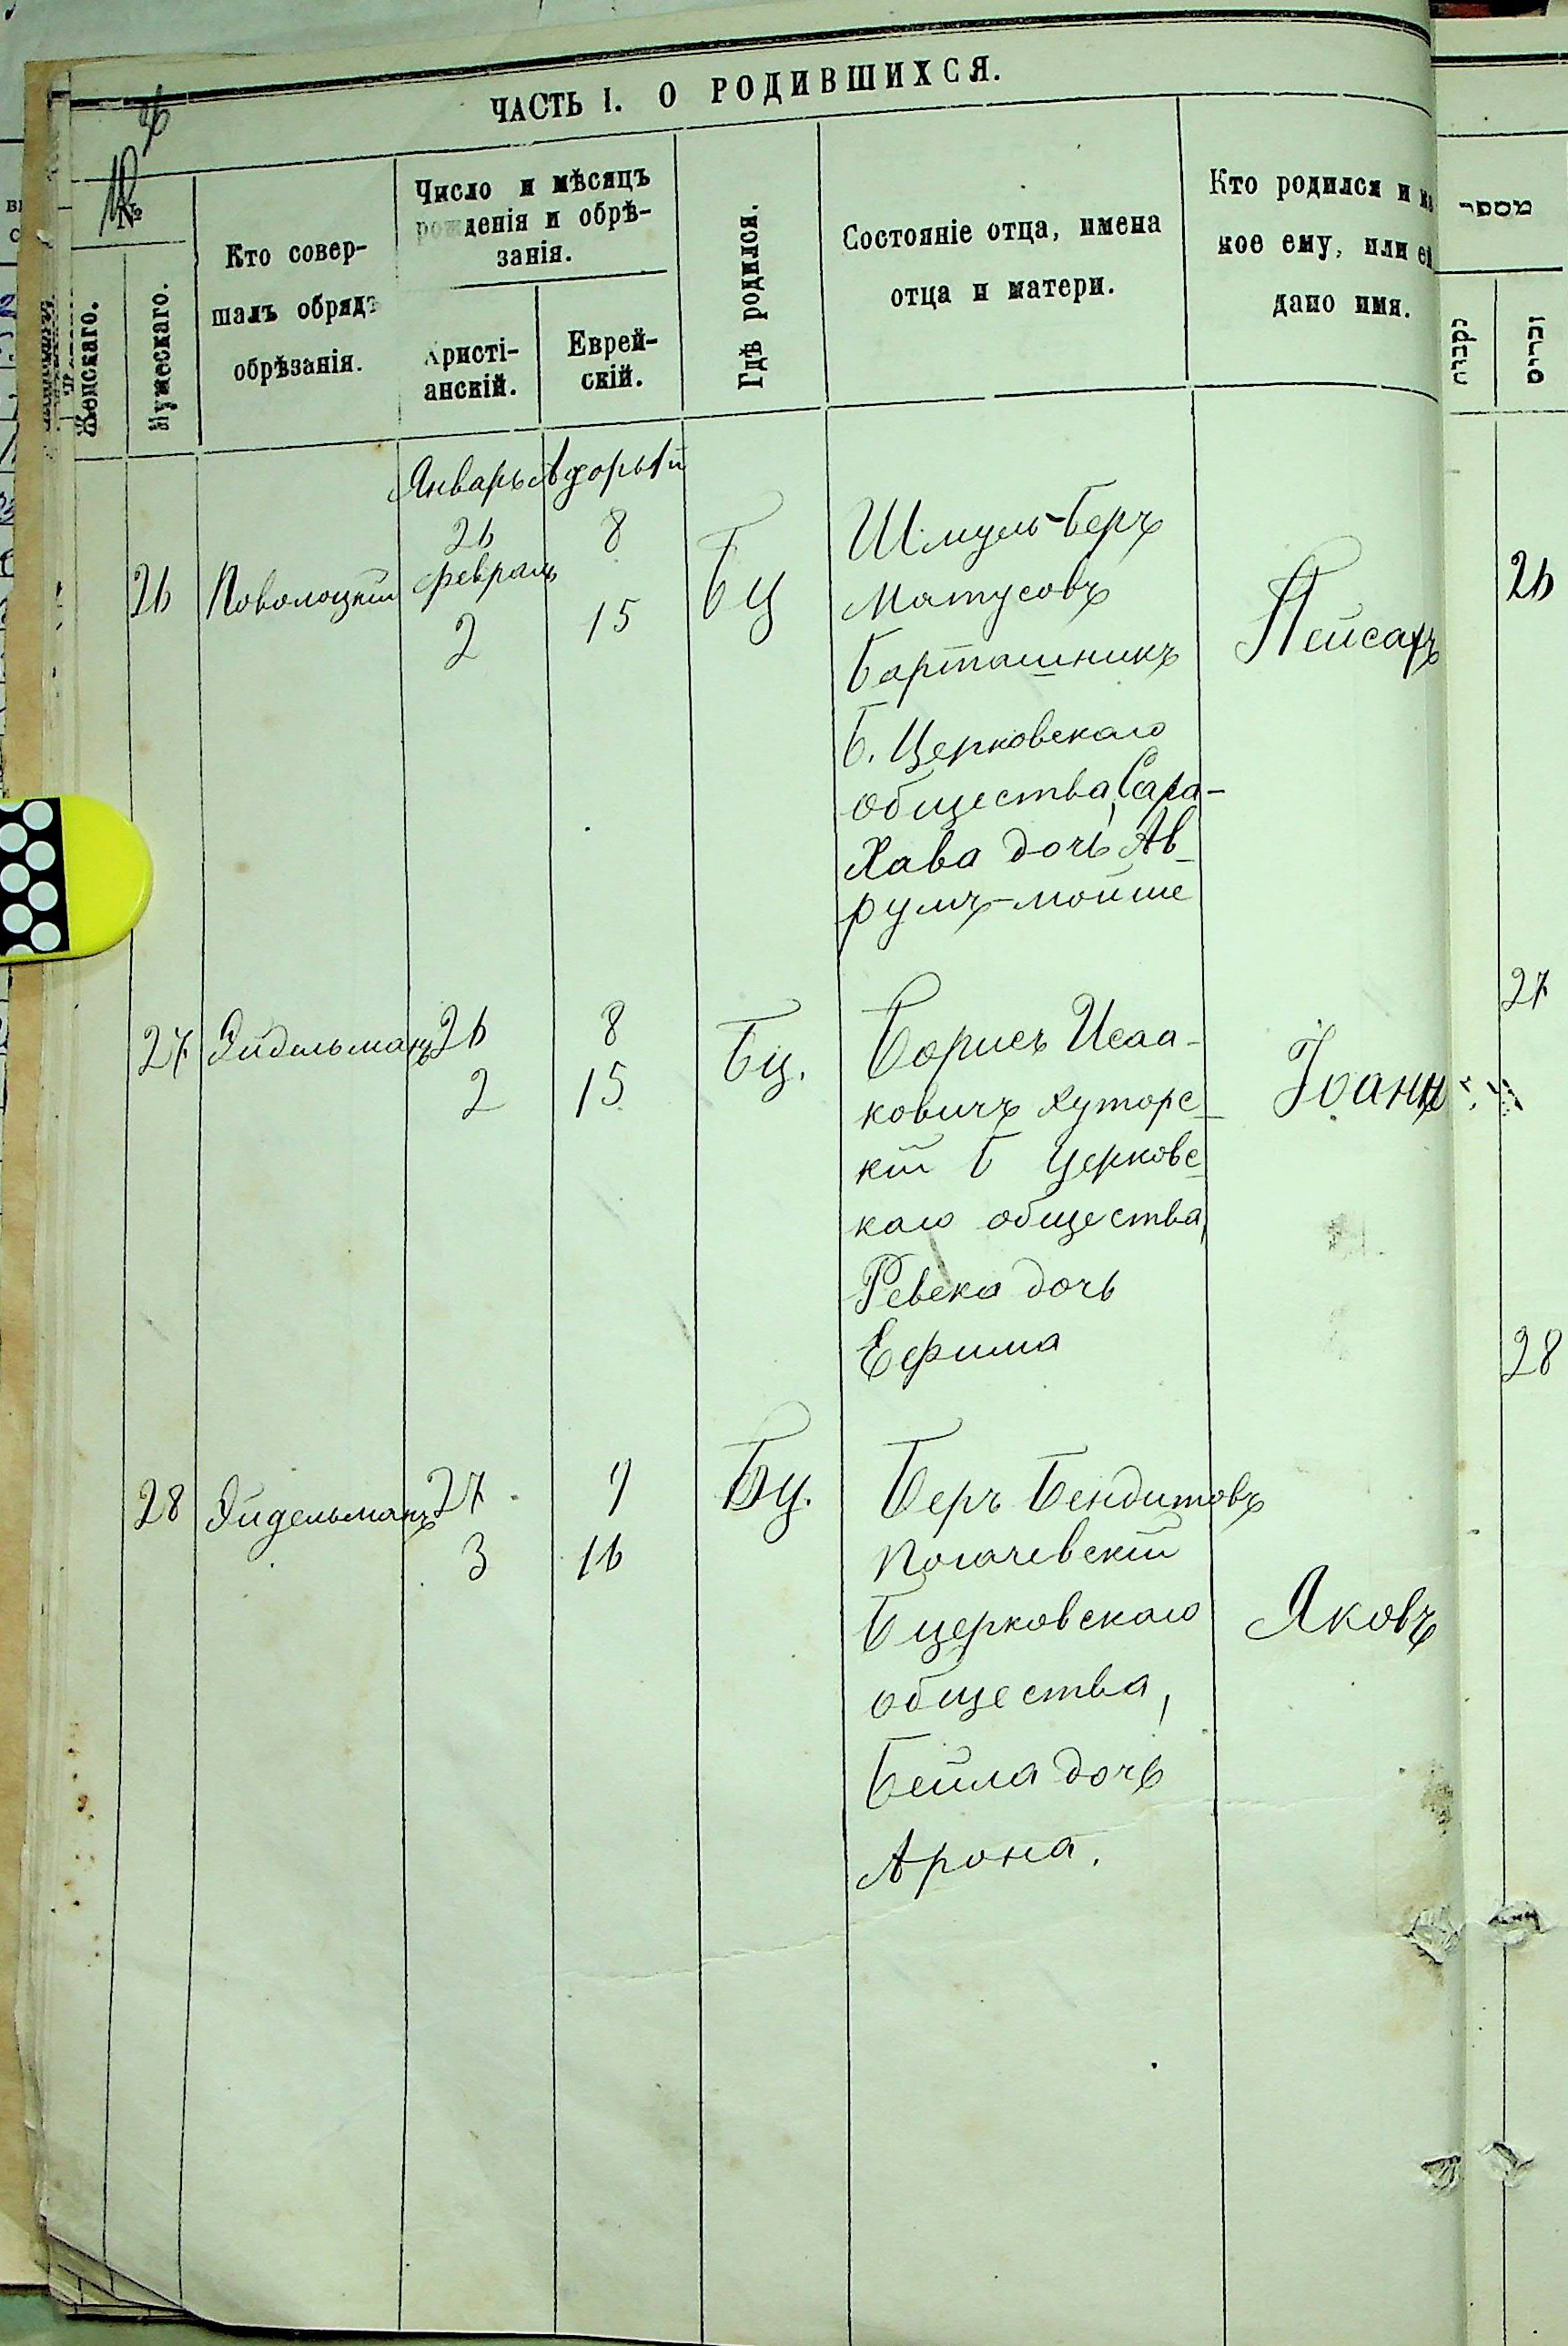 ЧАСТЬ I. О РОДИВШИХСЯ.
№
Женскаго.
Мужескаго.
Кто совер-
шалъ обрядъ
обрѣзанія.
Число и мѣсяцъ
рожденія и обрѣ-
занія.
Христі-
анскій.
Еврей-
скій.
Гдѣ родился.
Состояніе отца, имена
отца и матери.
Кто родился и ка
кое ему, или ей
дано имя.
מספר
נקבות
זכרים
Январь Адоръ 1й
26 8
февраль
2 15
26 Поволоцкій БЦ
Шмуль-Беръ
Матусовъ
Барташникъ
Б. Церковскаго
общества, Сара-
Хава дочь Ав-
румъ-Мойше
Пейсахъ
26
27 Эйдельманъ 26 8 Бц.
2 15
Борисъ Исаа-
ковичъ Хуторс-
кій Б Церковс-
каго общества,
Ревека дочь
Ефима
Іоаннъ
27
28 Эйдельманъ 27 9 Бц.
3 16
Беръ Бендитовъ
Погачевскій
Бцерковскаго
общества,
Бейла дочь
Арона.
Яковъ
28